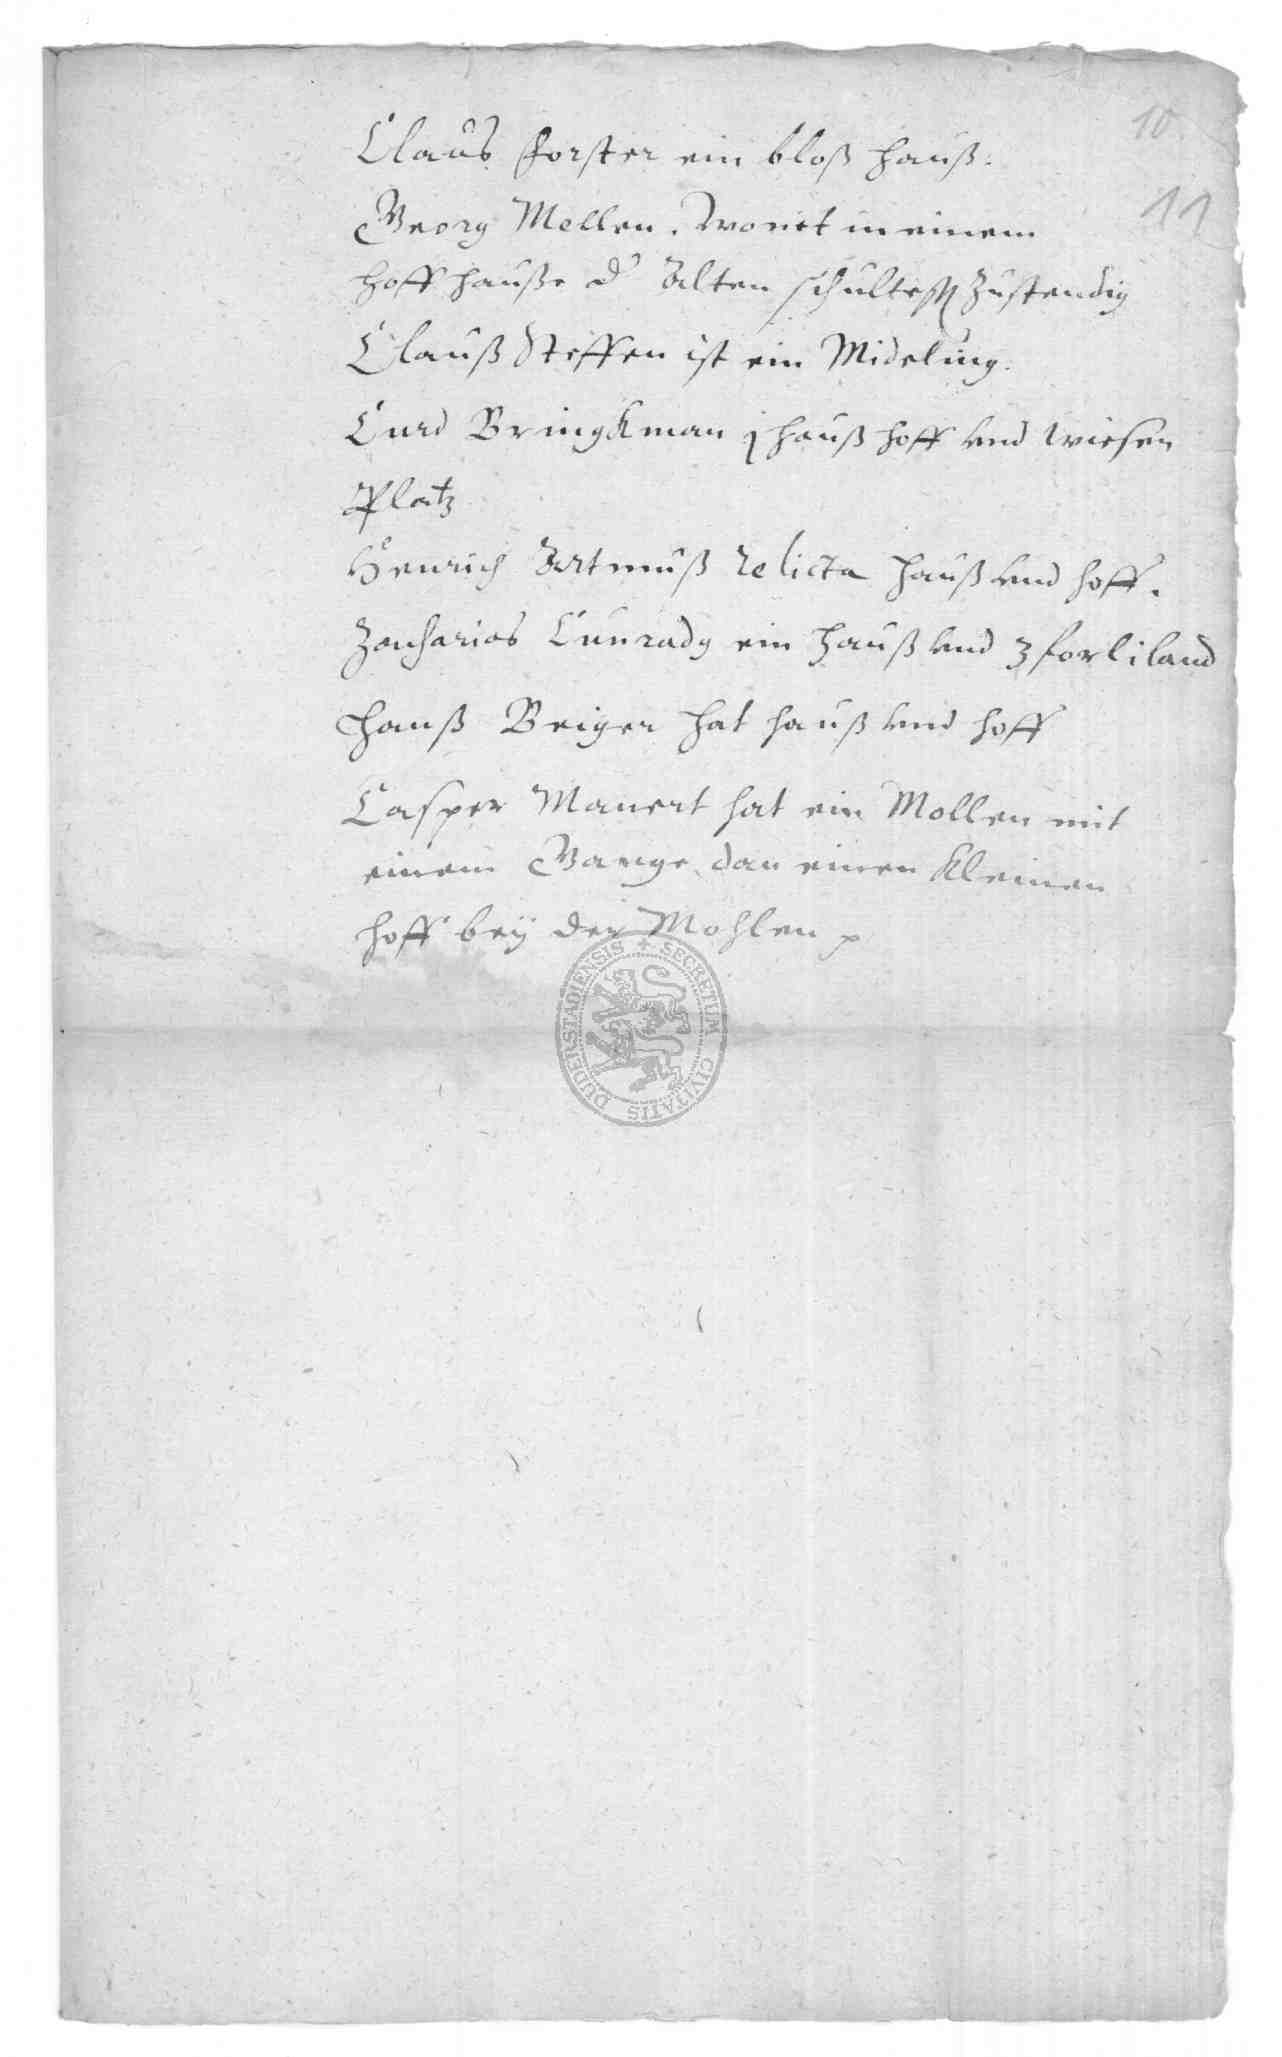 10
11
Claus Forster ein bloß hauß.
Georg Mellen. Wonet in einem
hoff hauße d' Alten schultess Zustendig
Clauß Steffen ist ein Mideling.
Curd Bringkman j hauß hoff vnd wiesen
Platz
Henrich Artmuß relicta hauß vnd hoff.
Zacharias Cunrady ein hauß vnd 3 forliland
Hanß Beiger hat hauß vnd hoff
Casper Manert hat ein Mollen mit
einem Gange, dan einen kleinen
hoff beÿ der Mohlen
SECRETUM CIVITATIS DUDERSTADIENSIS